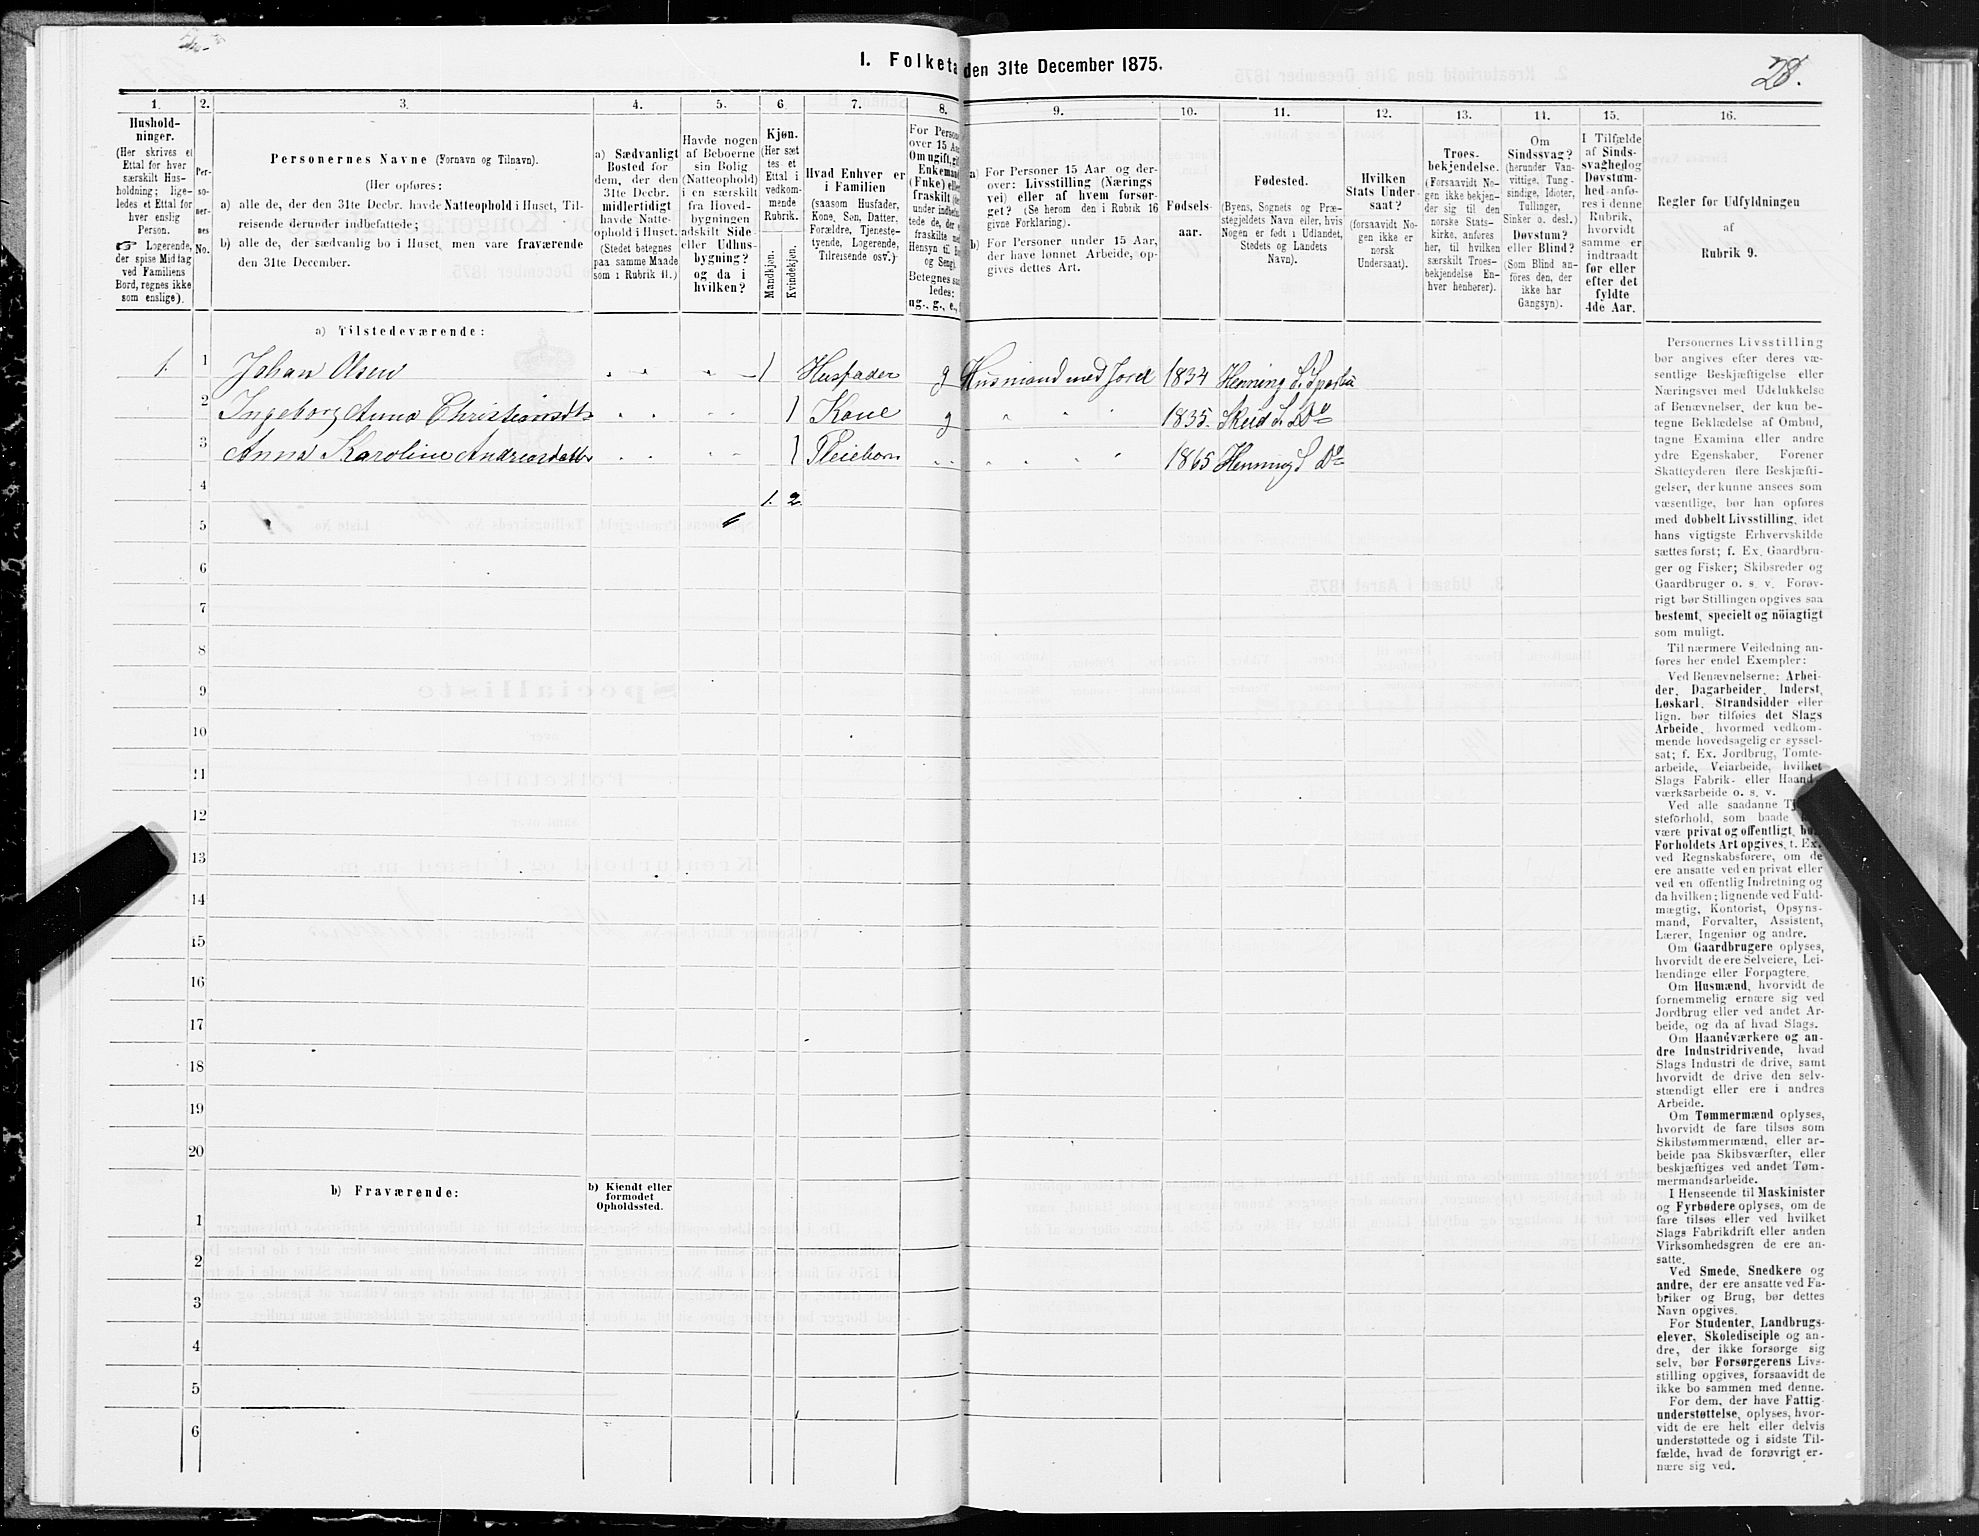 28.
1. Folketa den 31te December 1875.
1. 2. 3. 4. 5. 6. 7. 8. 9. 10. 11. 12. 13. 14. 15. 16.
Hushold-
ninger.
(Her skrives et
Ettal for hver
særskilt Hus-
holdning; lige-
ledes et Ettal for
hver enslig
Person.
☞ Logerende,
der spise Middag
ved Familiens
Bord, regnes ikke
som enslige).
Per-
so-
ner-
nes
No.
Personernes Navne (Fornavn og Tilnavn).
(Her opføres:
a) alle de, der den 31te Decbr. havde Natteophold i Huset, Til-
reisende derunder indbefattede;
b) alle de, der sædvanlig bo i Huset, men vare fraværende
den 31te December.
a) Sædvanligt
Bosted for
dem, der den
31te Decbr.
midlertidigt
havde Natte-
ophold i Huset.
(Stedet betegnes
paa samme Maade
som i Rubrik 11.)
Havde nogen
af Beboerne
sin Bolig
(Natteophold)
i en særskilt
fra Hoved-
bygningen
adskilt Side-
eller Udhus-
bygning?
og da i
hvilken?
Kjøn.
(Her sæt-
tes et
Ettal i
vedkom-
mende
Rubrik.
Mandkjøn.
Kvindekjøn.
Hvad Enhver er
i Familien
(saasom Husfader,
Kone, Søn, Datter,
Forældre, Tjeneste-
tyende, Logerende,
Tilreisende osv.)
For Person
over 15 Aa
Om ugift, gif
Enkemand
(Enke) elle
fraskilt
under indbefat-
tede de, der
fraskilte med
Hensyn til Bo
og Seng).
Betegnes saa
ledes:
ug., g., e.,
a) For Personer 15 Aar og der-
over: Livsstilling (Nærings
vei) eller af hvem forsør-
get? (Se herom den i Rubrik 16
givne Forklaring).
b) For Personer under 15 Aar,
der have lønnet Arbeide, op-
gives dettes Art.
Fødsels-
aar.
Fødested.
(Byens, Sognets og Præ-
stegjeldets Navn eller, hvis
Nogen er født i Udlandet,
Stedets og Landets
Navn).
Hvilken
Stats Under-
saat?
(forsaavidt No-
gen ikke er
norsk
Undersaat).
Troes-
bekjendelse.
(Forsaavidt No-
gen ikke bekjen-
der sig til den
norske Stats-
kirke, anføres
her, til hvilken
særskilt Troes-
bekjendelse En-
hver henhører).
Om
Sindssvag?
(herunder Van-
vittige, Tung-
sindige, Idioter,
Tullinger,
Sinker o. desl.)
Døvstum?
eller Blind?
(Som Blind an-
føres den, der
ikke har
Gangsyn).
I Tilfælde
af Sinds-
svaghed og
Døvstum-
hed anfø-
res i denne
Rubrik,
hvorvidt
samme er
indtraadt
før eller
efter det
fyldte
4de Aar.
Regler for Udfyldningen
af
Rubrik 9.
a) Tilstedeværende:
1. 1 Johan Olsen 1 Husfader g Husmand med Jord 1834 Henning S. Sparbu
2 Ingeborg Anna Christiansdtr 1 Kone g " " " 1835. Skeid S. Do
3 Anna Karoline Andreasdatter 1 Pleiebarn " " " " 1865 Henning S Do
4 1. 2
5
6
7
8
9
10
11
12
13
14
15
16
17
18
19
20
b) Fraværende:
b) Kjendt eller
formodet
Opholdssted.
1
2
3
4
5
6
Personernes Livsstilling
bør angives efter deres væ-
sentlige Beskjæftigelse eller
Næringsvei med Udelukkelse
af Benævnelser, der kun be-
tegne Beklædelse af Ombud,
tagne Examina eller andre
ydre Egenskaber. Forener
Skatteyderen flere Beskjæfti-
gelser, der kunne ansees som
væsentlige, bør han opføres
med dobbelt Livsstilling, idet
hans vigtigste Erhvervskilde
sættes først; f. Ex. Gaardbru-
ger og Fisker; Skibsreder og
Gaardbruger o. s. v. Forøv-
rigt bør Stillingen opgives saa
bestemt, specielt og nöiagtigt
som muligt.
Til nærmere Veiledning an-
føres her endel Exempler:
Ved Benævnelserne: Arbei-
der, Dagarbeider, Inderst,
Løskarl, Strandsidder eller
lign. bør tilføies det Slags
Arbeide, hvormed vedkom-
mende hovedsagelig er syssel-
sat; f. Ex. Jordbrug, Tomte-
arbeide, Veiarbeide, hvilket
Slags Fabrik- eller Haand-
værksarbeide o. s. v.
Ved alle saadanne
steforhold, som baade
være privat og offentligt, bør
Forholdets Art opgives, f. Ex.
ved Regnskabsførere, om de
ere ansatte ved en privat eller
ved en offentlig Indretning og
da hvilken; lignende ved Fuld-
mægtig, Kontorist, Opsyns-
mand, Forvalter, Assistent,
Lærer, Ingeniør og andre.
Om Gaardbrugere oplyses,
hvorvidt de ere Selveiere, Lei-
lændinge eller Forpagtere.
Om Husmænd, hvorvidt de
fornemmelig ernære sig ved
Jordbrug eller ved andet Ar-
beide, og da af hvad Slags.
Om Haandværkere og an-
dre Industridrivende, hvad
Slags Industri de drive, samt
hvorvidt de drive den selv-
stændigt eller ere i andres
Arbeide.
Om Tømmermænd oplyses,
hvorvidt de fare tilsøs som
Skibstømmermænd, eller ar-
beide paa Skibsværfter, eller
beskjæftiges ved andet Tøm-
mermandsarbeide.
I Henseende til Maskinister
og Fyrbødere oplyses, om de
fare tilsøs eller ved hvilket
Slags Fabrikdrift eller anden
Virksomhedsgren de ere an-
satte.
Ved Smede, Snedkere og
andre, der ere ansatte ved Fa-
briker og Brug, bør dettes
Navn opgives.
For Studenter, Landbrugs-
elever, Skoledisciple og an-
dre, der ikke forsørge sig
selv, bør Forsørgerens Livs-
stilling opgives, forsaavidt de
ikke bo sammen med denne.
For dem, der have Fattig-
understøttelse, oplyses, hvor-
vidt de ere helt eller delvis
understøttede og i sidste Til-
fælde, hvad de forøvrigt er-
nære sig ved.